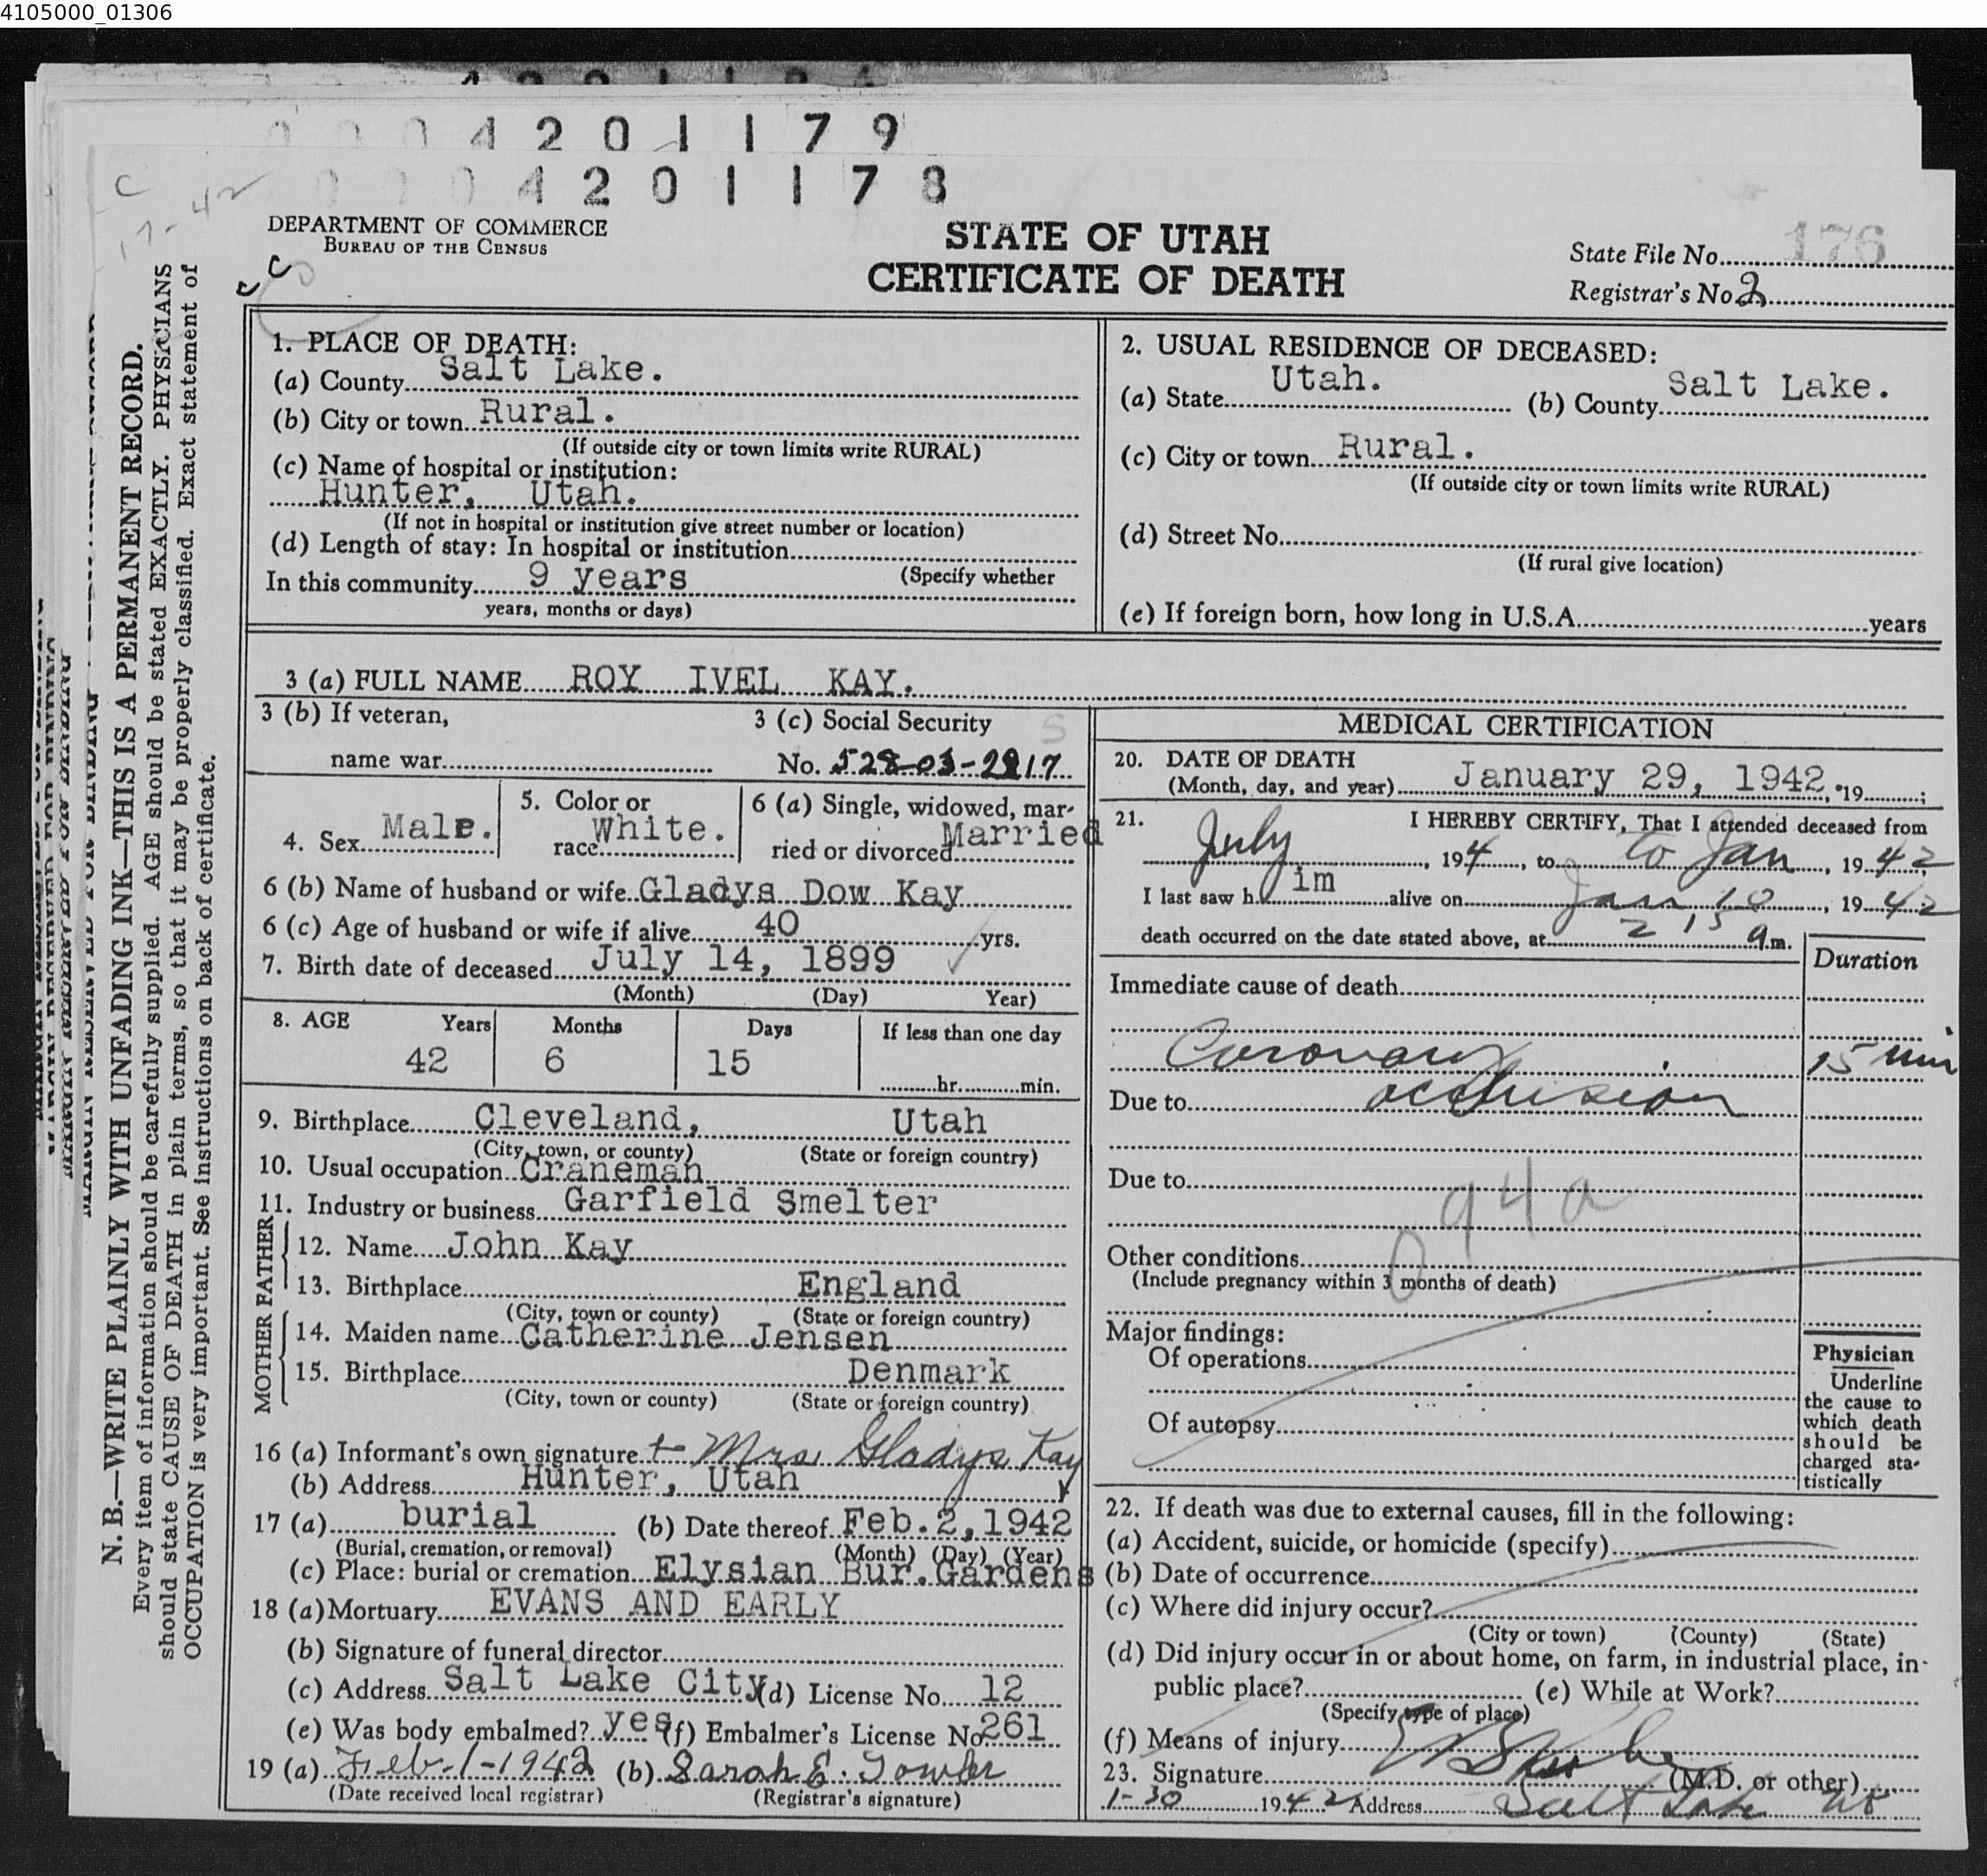 4105000_01306
4201179
4201178
C
17-42
DEPARTMENT OF COMMERCE
BUREAU OF THE CENSUS
STATE OF UTAH
CERTIFICATE OF DEATH
State File No. 176
Registrar's No. 2
N. B.—WRITE PLAINLY WITH UNFADING INK—THIS IS A PERMANENT RECORD.
Every item of information should be carefully supplied. AGE should be stated EXACTLY. PHYSICIANS
should state CAUSE OF DEATH in plain terms, so that it may be properly classified. Exact statement of
OCCUPATION is very important. See instructions on back of certificate.
1. PLACE OF DEATH:
(a) County Salt Lake.
(b) City or town Rural.
(If outside city or town limits write RURAL)
(c) Name of hospital or institution:
Hunter, Utah.
(If not in hospital or institution give street number or location)
(d) Length of stay: In hospital or institution
In this community 9 years (Specify whether
years, months or days)
2. USUAL RESIDENCE OF DECEASED:
(a) State Utah. (b) County Salt Lake.
(c) City or town Rural.
(If outside city or town limits write RURAL)
(d) Street No.
(If rural give location)
(e) If foreign born, how long in U.S.A. years
3 (a) FULL NAME ROY IVEL KAY.
3 (b) If veteran, 3 (c) Social Security
name war No. 528-03-2917
4. Sex Male. 5. Color or race White. 6 (a) Single, widowed, married or divorced Married
6 (b) Name of husband or wife Gladys Dow Kay
6 (c) Age of husband or wife if alive 40 yrs.
7. Birth date of deceased July 14, 1899
(Month) (Day) Year)
8. AGE Years Months Days If less than one day
42 6 15 hr. min.
9. Birthplace Cleveland, Utah
(City, town, or county) (State or foreign country)
10. Usual occupation Craneman
11. Industry or business Garfield Smelter
FATHER
12. Name John Kay
13. Birthplace England
(City, town or county) (State or foreign country)
MOTHER
14. Maiden name Catherine Jensen
15. Birthplace Denmark
(City, town or county) (State or foreign country)
16 (a) Informant's own signature Mrs Gladys Kay
(b) Address Hunter, Utah
17 (a) burial (b) Date thereof Feb. 2, 1942
(Burial, cremation, or removal) (Month) (Day) (Year)
(c) Place: burial or cremation Elysian Bur. Gardens
18 (a) Mortuary EVANS AND EARLY
(b) Signature of funeral director
(c) Address Salt Lake City (d) License No. 12
(e) Was body embalmed? yes (f) Embalmer's License No 261
19 (a) Feb-1-1942 (b) Sarah E. Towler
(Date received local registrar) (Registrar's signature)
MEDICAL CERTIFICATION
20. DATE OF DEATH
(Month, day, and year) January 29, 1942. 19 ;
21. I HEREBY CERTIFY, That I attended deceased from
July, 194, to to Jan, 1942
I last saw him alive on Jan 10, 1942
death occurred on the date stated above, at 2 15 a m.
Duration
Immediate cause of death
Coronary 15 min
Due to occlusion
Due to
94a
Other conditions
(Include pregnancy within 3 months of death)
Major findings:
Of operations
Of autopsy
Physician
Underline
the cause to
which death
should be
charged sta-
tistically
22. If death was due to external causes, fill in the following:
(a) Accident, suicide, or homicide (specify)
(b) Date of occurrence
(c) Where did injury occur?
(City or town) (County) (State)
(d) Did injury occur in or about home, on farm, in industrial place, in-
public place? (e) While at Work?
(Specify type of place)
(f) Means of injury
23. Signature (M.D. or other)
1-30 1942 Address Salt Lake